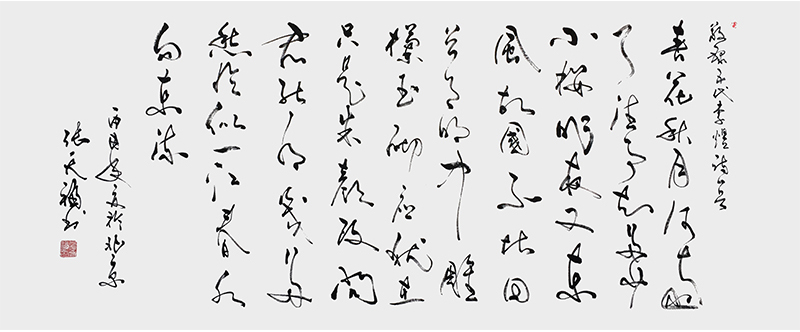 五代李煜
春花秋月何時
了往事知多少
小樓昨夜又東
風故國不堪回
首月明中雕
欄玉砌應猶在
只是朱顏改問
君能有幾多
愁恰似一江春水
向東流
於北京
張天福書